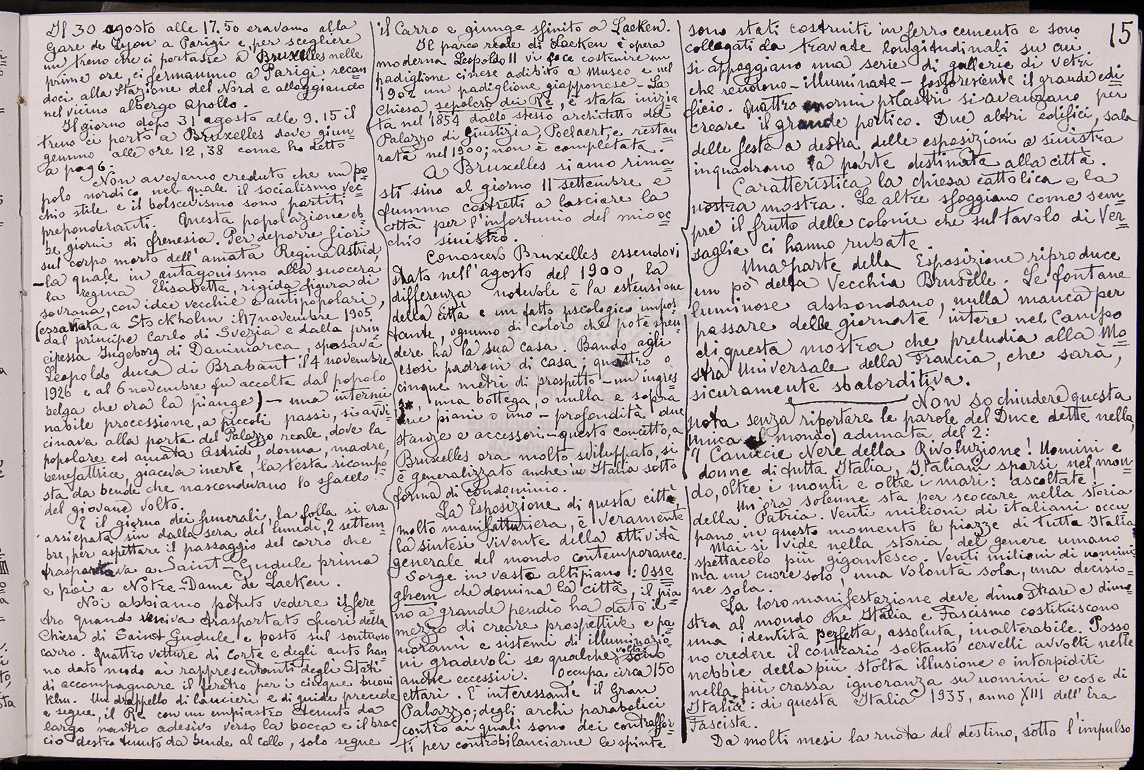 15
Il 30 agosto alle 17.50 eravamo alla
Gare de Lyon a Parigi e, per scegliere
un treno che ci portasse a Bruxelles nelle
prime ore, ci fermammo a Parigi, recan
doci alla Stazione del Nord e alloggiando
nel vicino albergo Apollo.
Il giorno dopo 31 agosto alle 9.15 il
treno ci portò a Bruxelles dove giun
gemmo alle ore 12,38 come ho detto
a pag 6.
Non avevamo creduto che un po
polo nordico nel quale il socialismo vec
chio stile e il bolscevismo sono partiti
preponderanti. Questa popolazione eb
be giorni di frenesia. Per deporre fiori
sul corpo morto dell'amata Regina Astrid,
la quale in antagonismo alla suocera
la regina Elisabetta, rigida figura di
sovrana, con idee vecchie e antipopolari,
(essa nata a Stockholm il 17 novembre 1905,
dal principe Carlo di Svezia e dalla prin
cipessa Ingeborg di Danimarca, sposava
Leopoldo duca di Brabant il 4 novembre
1926 e al 6 novembre fu accolta dal popolo
belga che ora la piange) - una intermi
nabile processione, a piccoli passi, si avvi
cinava alla porta del Palazzo reale, dove la
popolare ed amata Astrid, donna, madre,
benefattrice, giaceva inerte la testa ricompo
sta da bende che nascondevano lo sfacelo
del giovane volto.
E il giorno dei funerali, la folla si era
assiepata sin dalla sera del lunedì, 2 settem
bre, per aspettare il passaggio del carro che
trasportava a Saint Gudule prima
e poi a Notre-Dame de Laeken.
Noi abbiamo potuto vedere il fere
tro quando veniva trasportato fuori della
Chiesa di Saint Gudule e posto sul sontuoso
carro. Quattro vetture di corte e degli auto han
no dato modo ai rappresentanti degli Stati
di accompagnare il feretro per i cinque buoni
klm. Un drappello di lancieri e di guide precede
e segue, il Re con un impiastro tenuto da
largo nastro adesivo verso la bocca e il brac
cio destro tenuto da bende al collo, solo segue
il Carro e giunge sfinito a Laeken.
Il parco reale di Laeken è opera
moderna Leopoldo II vi fece costruire un
padiglione cinese adibito a Museo e nel
1902 un padiglione giapponese - La
Chiesa sepolcro dei Re, è stata inizia
ta nel 1854 dallo stesso architetto del
Palazzo di Giustizia, Poelaert e restau
rata nel 1900; non è completata.
A Bruxelles siamo rima
sti sino al giorno 11 settembre e
fummo costretti a lasciare la
città per l'infortunio del mio oc
chio sinistro.
Conoscevo Bruxelles essendovi
stato nell'agosto del 1900, la
differenza notevole è la estensione
della città e un fatto psicologico impor
tante, ognuno di coloro che può spen
dere ha la sua casa. Bando agli
esosi padroni di casa; quattro o
cinque metri di prospetto - un ingres
una bottega o nulla e sopra
due piani o uno - profondità due
stanze e accessori - questo concetto, a
Bruxelles ora molto sviluppato, si
è generalizzato anche in Italia sotto
forma di condominio.
La Esposizione di questa città,
molto manifatturiera, è veramente
la sintesi vivente della attività
generale del mondo contemporaneo.
Sorge in vasto altipiano: Osse
ghem che domina la città, il pia
no a grande pendio ha dato il
mezzo di creare prospettive e pa
norami e sistemi di illuminazio
ni gradevoli se qualche volta sono
anche eccessivi. Occupa circa 150
ettari. È interessante il Gran
Palazzo, degli archi parabolici
contro ai quali sono dei contraffor
ti per controbilanciarne le spinte
sono stati costruiti in ferro cemento e sono
collegati da travate longitudinali su cui
si appoggiano una serie di gallerie di vetri
che rendono - illuminate - fosforescente il grande edi
ficio. Quattro enormi pilastri si avanzano per
creare il grande portico. Due altri edifici, sala
delle festa a destra, delle esposizioni a sinistra
inquadrano la parte destinata alla città.
Caratteristica la chiesa cattolica e la
nostra mostra. Le altre sfoggiano come sem
pre il frutto delle colonie che sul tavolo di Ver
saglia ci hanno rubate.
Una parte della Esposizione riproduce
un pò della Vecchia Bruselle. Le fontane
luminose abbondano, nulla manca per
passare delle giornate intere nel Campo
di questa mostra che preludia alla Mo
stra Universale della Francia, che sarà,
sicuramente sbalorditiva.
Non so chiudere questa
nota senza riportare le parole del Duce dette nella,
unica al mondo, adunata del 2:
"Camicie Nere della Rivoluzione! Uomini e
donne di tutta Italia, Italiani sparsi nel mon
do, oltre i monti e oltre i mari: ascoltate!
Un'ora solenne sta per scoccare nella storia
della Patria. Venti milioni di italiani occu
pano in questo momento le piazze di tutta Italia.
Mai si vide nella storia del genere umano
spettacolo più gigantesco. Venti milioni di uomini
ma un cuore solo, una volontà sola, una decisio
ne sola.
La loro manifestazione deve dimostrare e dimo
stra al mondo che Italia e Fascismo costituiscono
una identità perfetta, assoluta, inalterabile. Posso
no credere il contrario soltanto cervelli avvolti nelle
nebbie della più stolta illusione o intorpiditi
nella più crassa ignoranza su uomini e cose di
Italia: di questa Italia 1935, anno XIII dell'Era
Fascista.
Da molti mesi la ruota del destino, sotto l'impulso